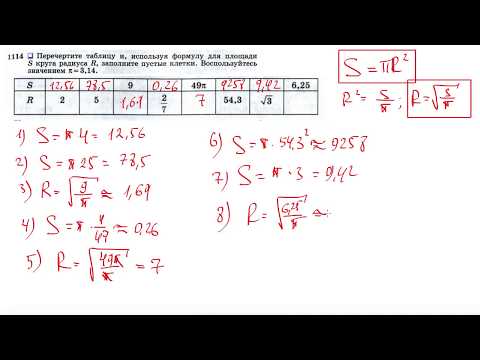 1114 Перечертите таблицу и, используя формулу для площади
S круга радиуса R, заполните пустые клетки. Воспользуйтесь
значением π = 3,14.
S 12,56 78,5 9 0,26 49π 9258 9,42 6,25
R 2 5 1,69 2/7 7 54,3 √3
S = πR²
R² = S/π ; R = √(S/π)
1) S = π 4 = 12,56
2) S = π 25 = 78,5
3) R = √(9/π) ≈ 1,69
4) S = π · 4/49 ≈ 0,26
5) R = √(49π/π) = 7
6) S = π · 54,3² ≈ 9258
7) S = π · 3 = 9,42
8) R = √(6,25/π) ≈